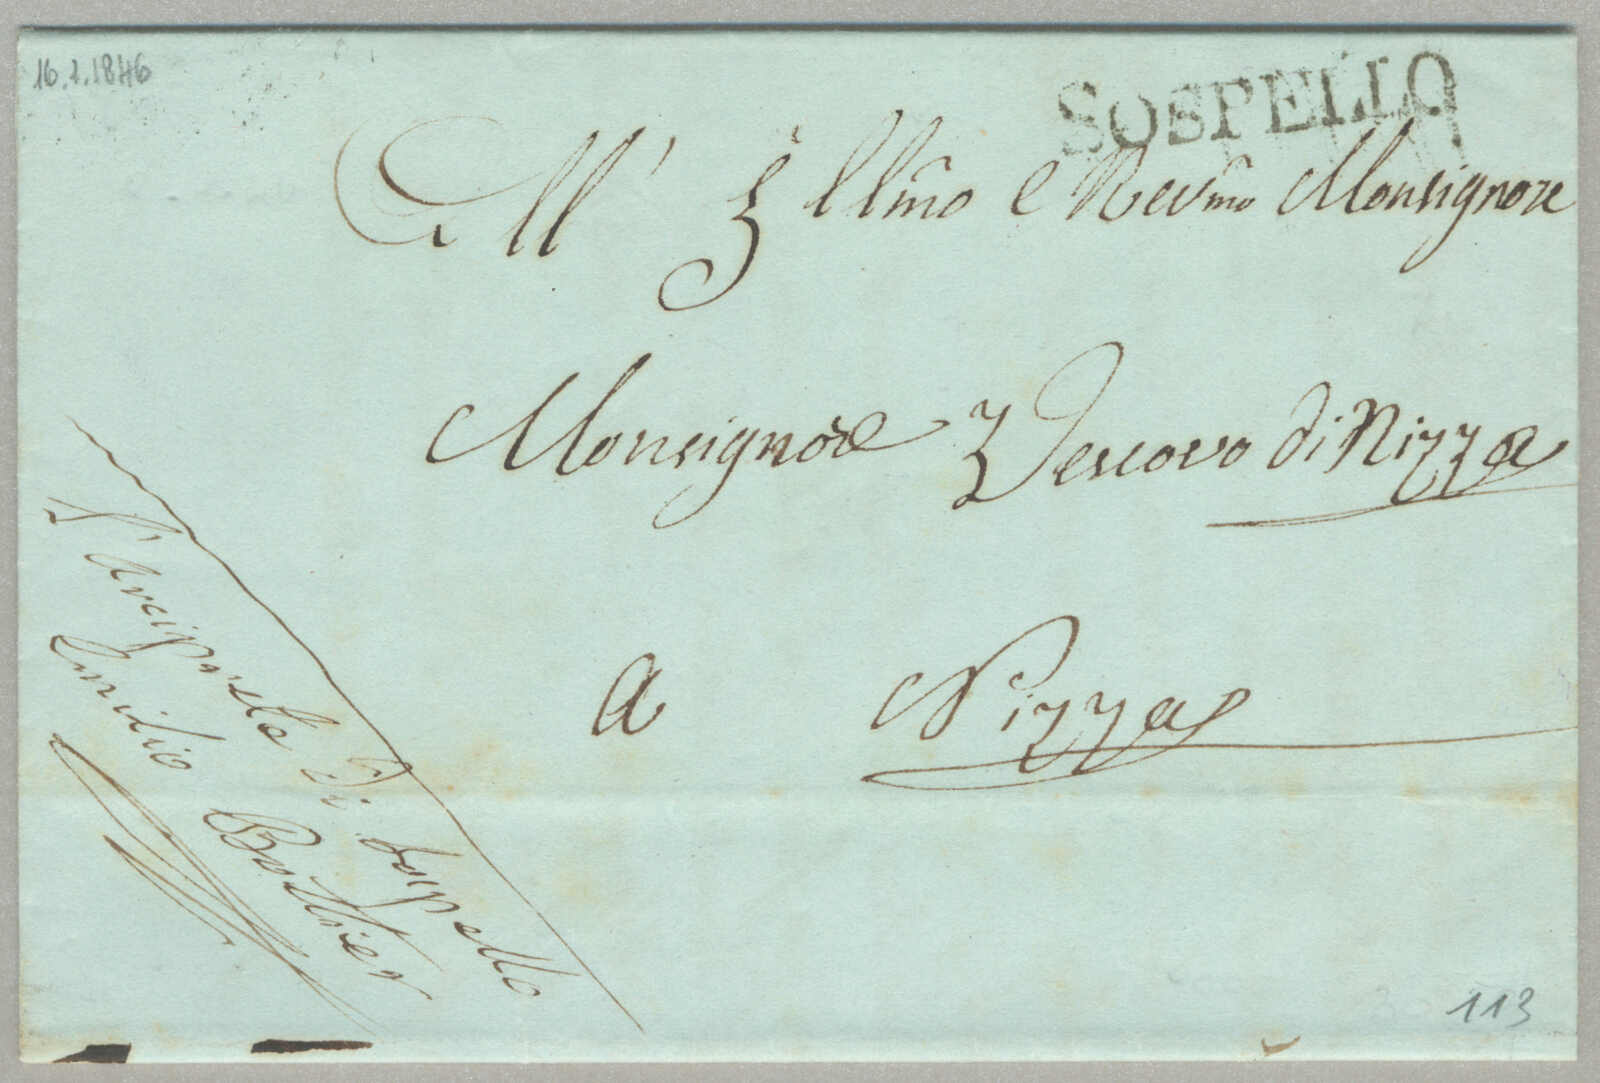 16.1.1846
SOSPELLO
All' Illmo e Revmo Monsignore
Monsignore Vescovo di Nizza
a Nizza
L'Arciprete di Sospello
Emilio
113